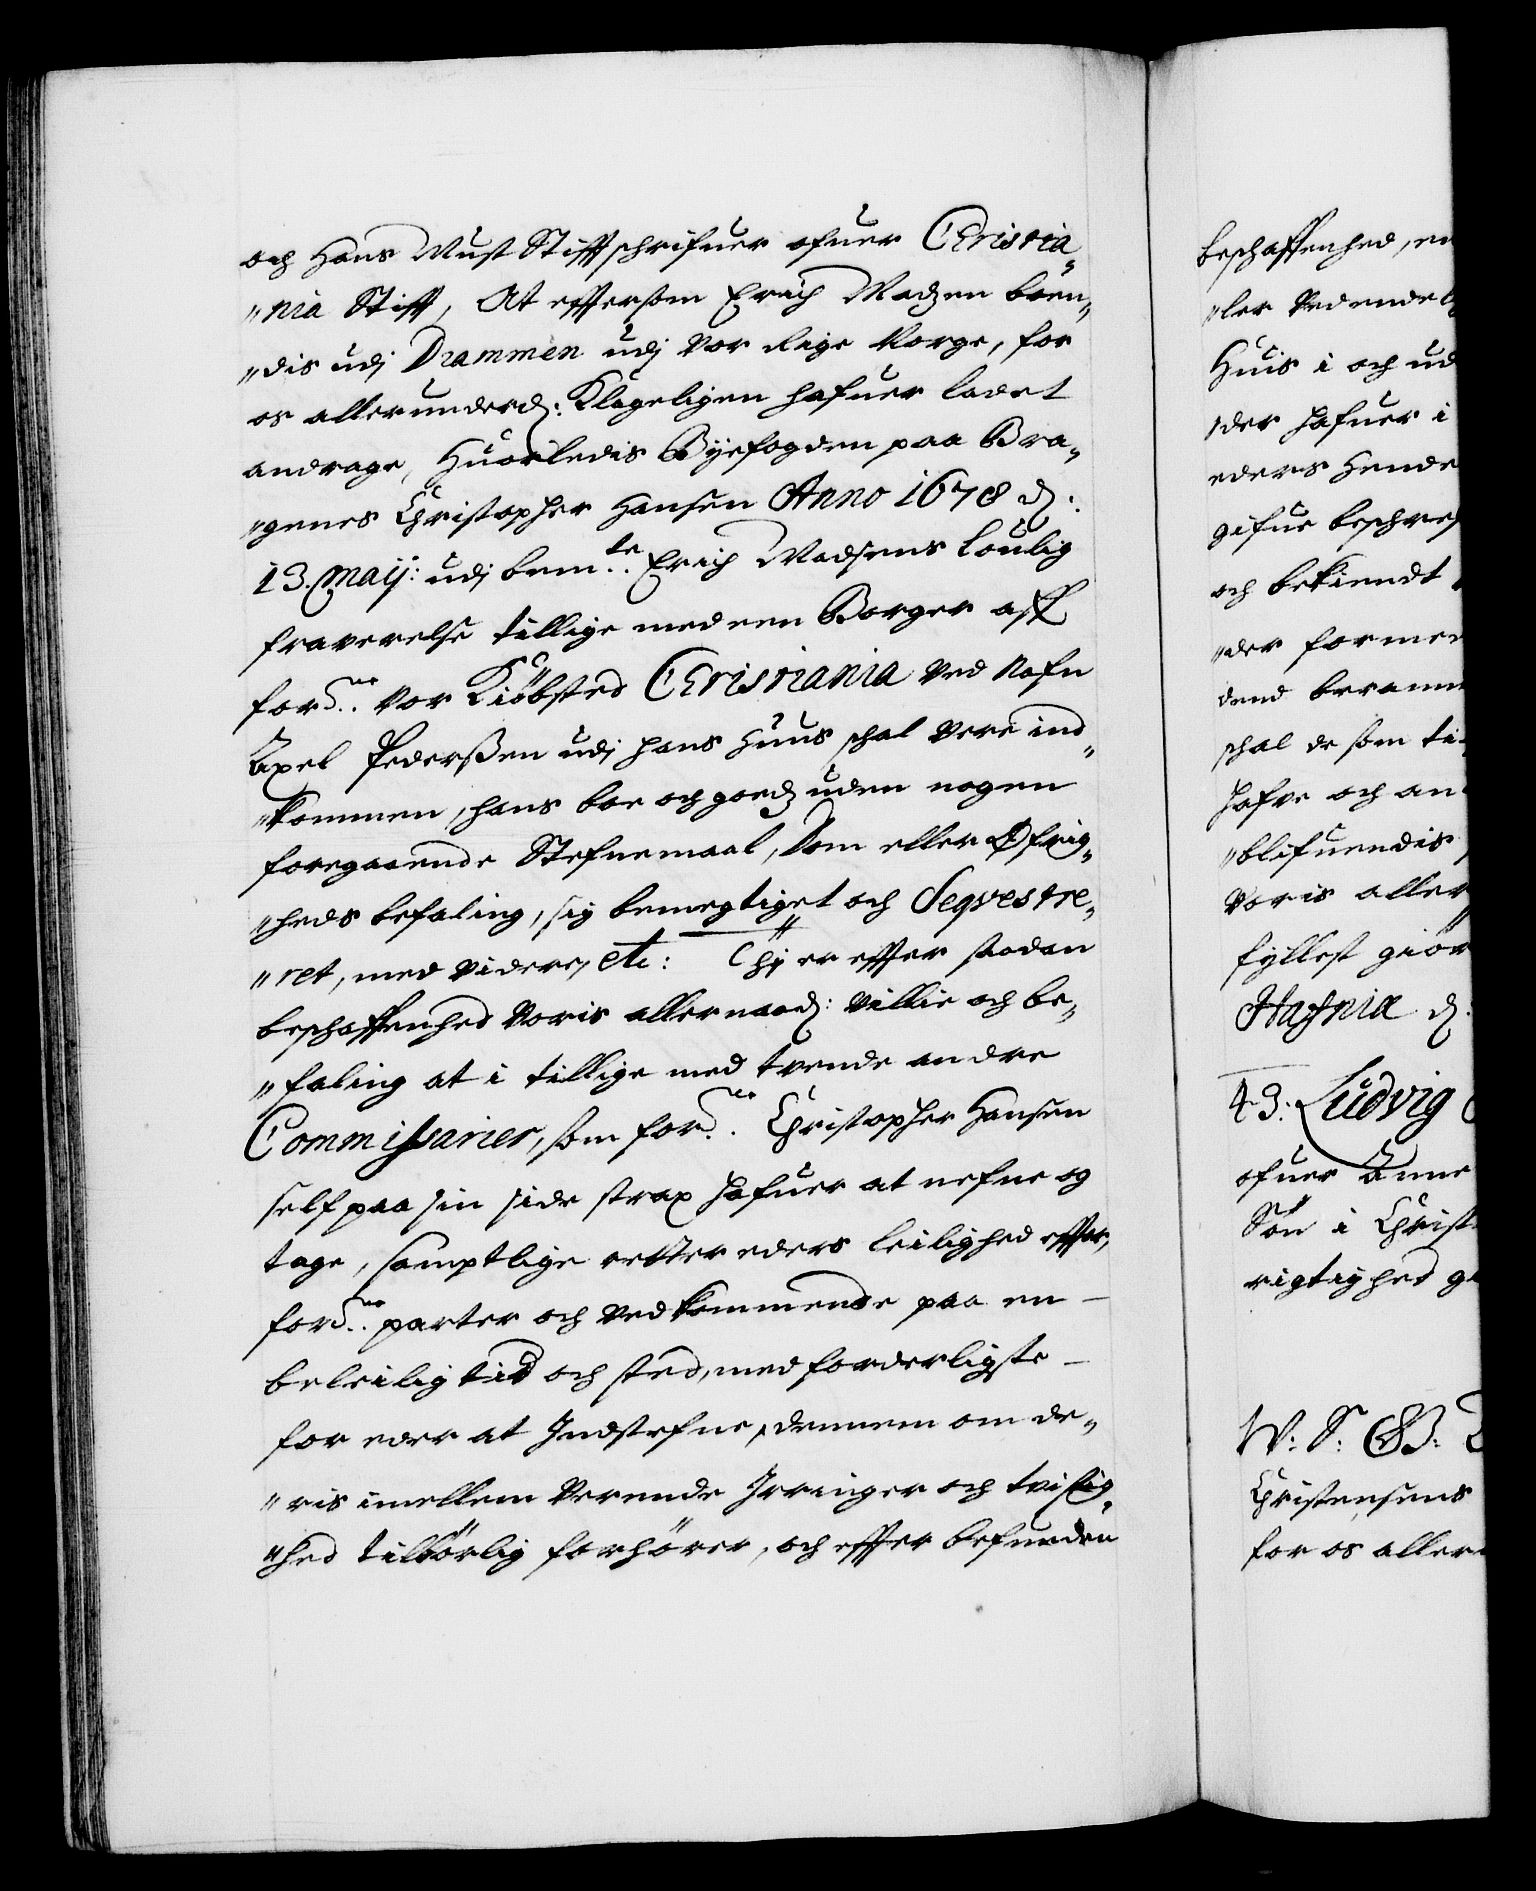 och Hans Must Stiffschrifuer ofuer Christia„
„nia Stiff, At effersom Erich Madzen boen„
„dis udj Drammen udj vor Rige Norge, for
os allerunderd: Klageligen hafuer ladet
andrage, Huorledis Byefogden paa Bra„
„genes Christopher Hansen Anno 1678 d:
13. Maij: udj bem:te Erich Madsens loulig
fraverelse tillige med een Borger aff
ford:ne vor Kiöbsted Christiania ved nafn
Axel Pederßen udj hans Huus schal vere ind„
„kommen, hans boe och goedz uden nogen
foregaaende Stefnemaal, Dom eller Øfrig„
„heds befaling, sig bemegtiget och Seqvestre„
„ret, med viderej etc: Thj er effter saadan
beschaffenhed Voris allernaad: villie och be„
„faling at i tillige med tvende andre
Commissarier, som ford:ne Christopher Hansen
self paa sin side strax hafuer at nefne og
tage, samptlige retter eders leilighed effter,
ford:ne parter och vedkommende paa en
beleilig tid och sted, med forderligste
for eder at Indstefne, dennem om de„
„ris imellem verende Irringer och tvistig„
„hed tilbörlig forhörer, och effter befunden
beschaffenhed, en
„ler vedendelig
Huis i och ud
„der hafuer i
eders Hende
gifue beschref
och bekiendt
„der formed
dend beramm
schal de som ti
hafve och an
„blifuendis
voris aller
fyllest giör
Hafniæ d:
43: Ludvig
ofuer Anne
Sön i Christ
rigtighed g
W: S: G B:
Christensens
for os aller